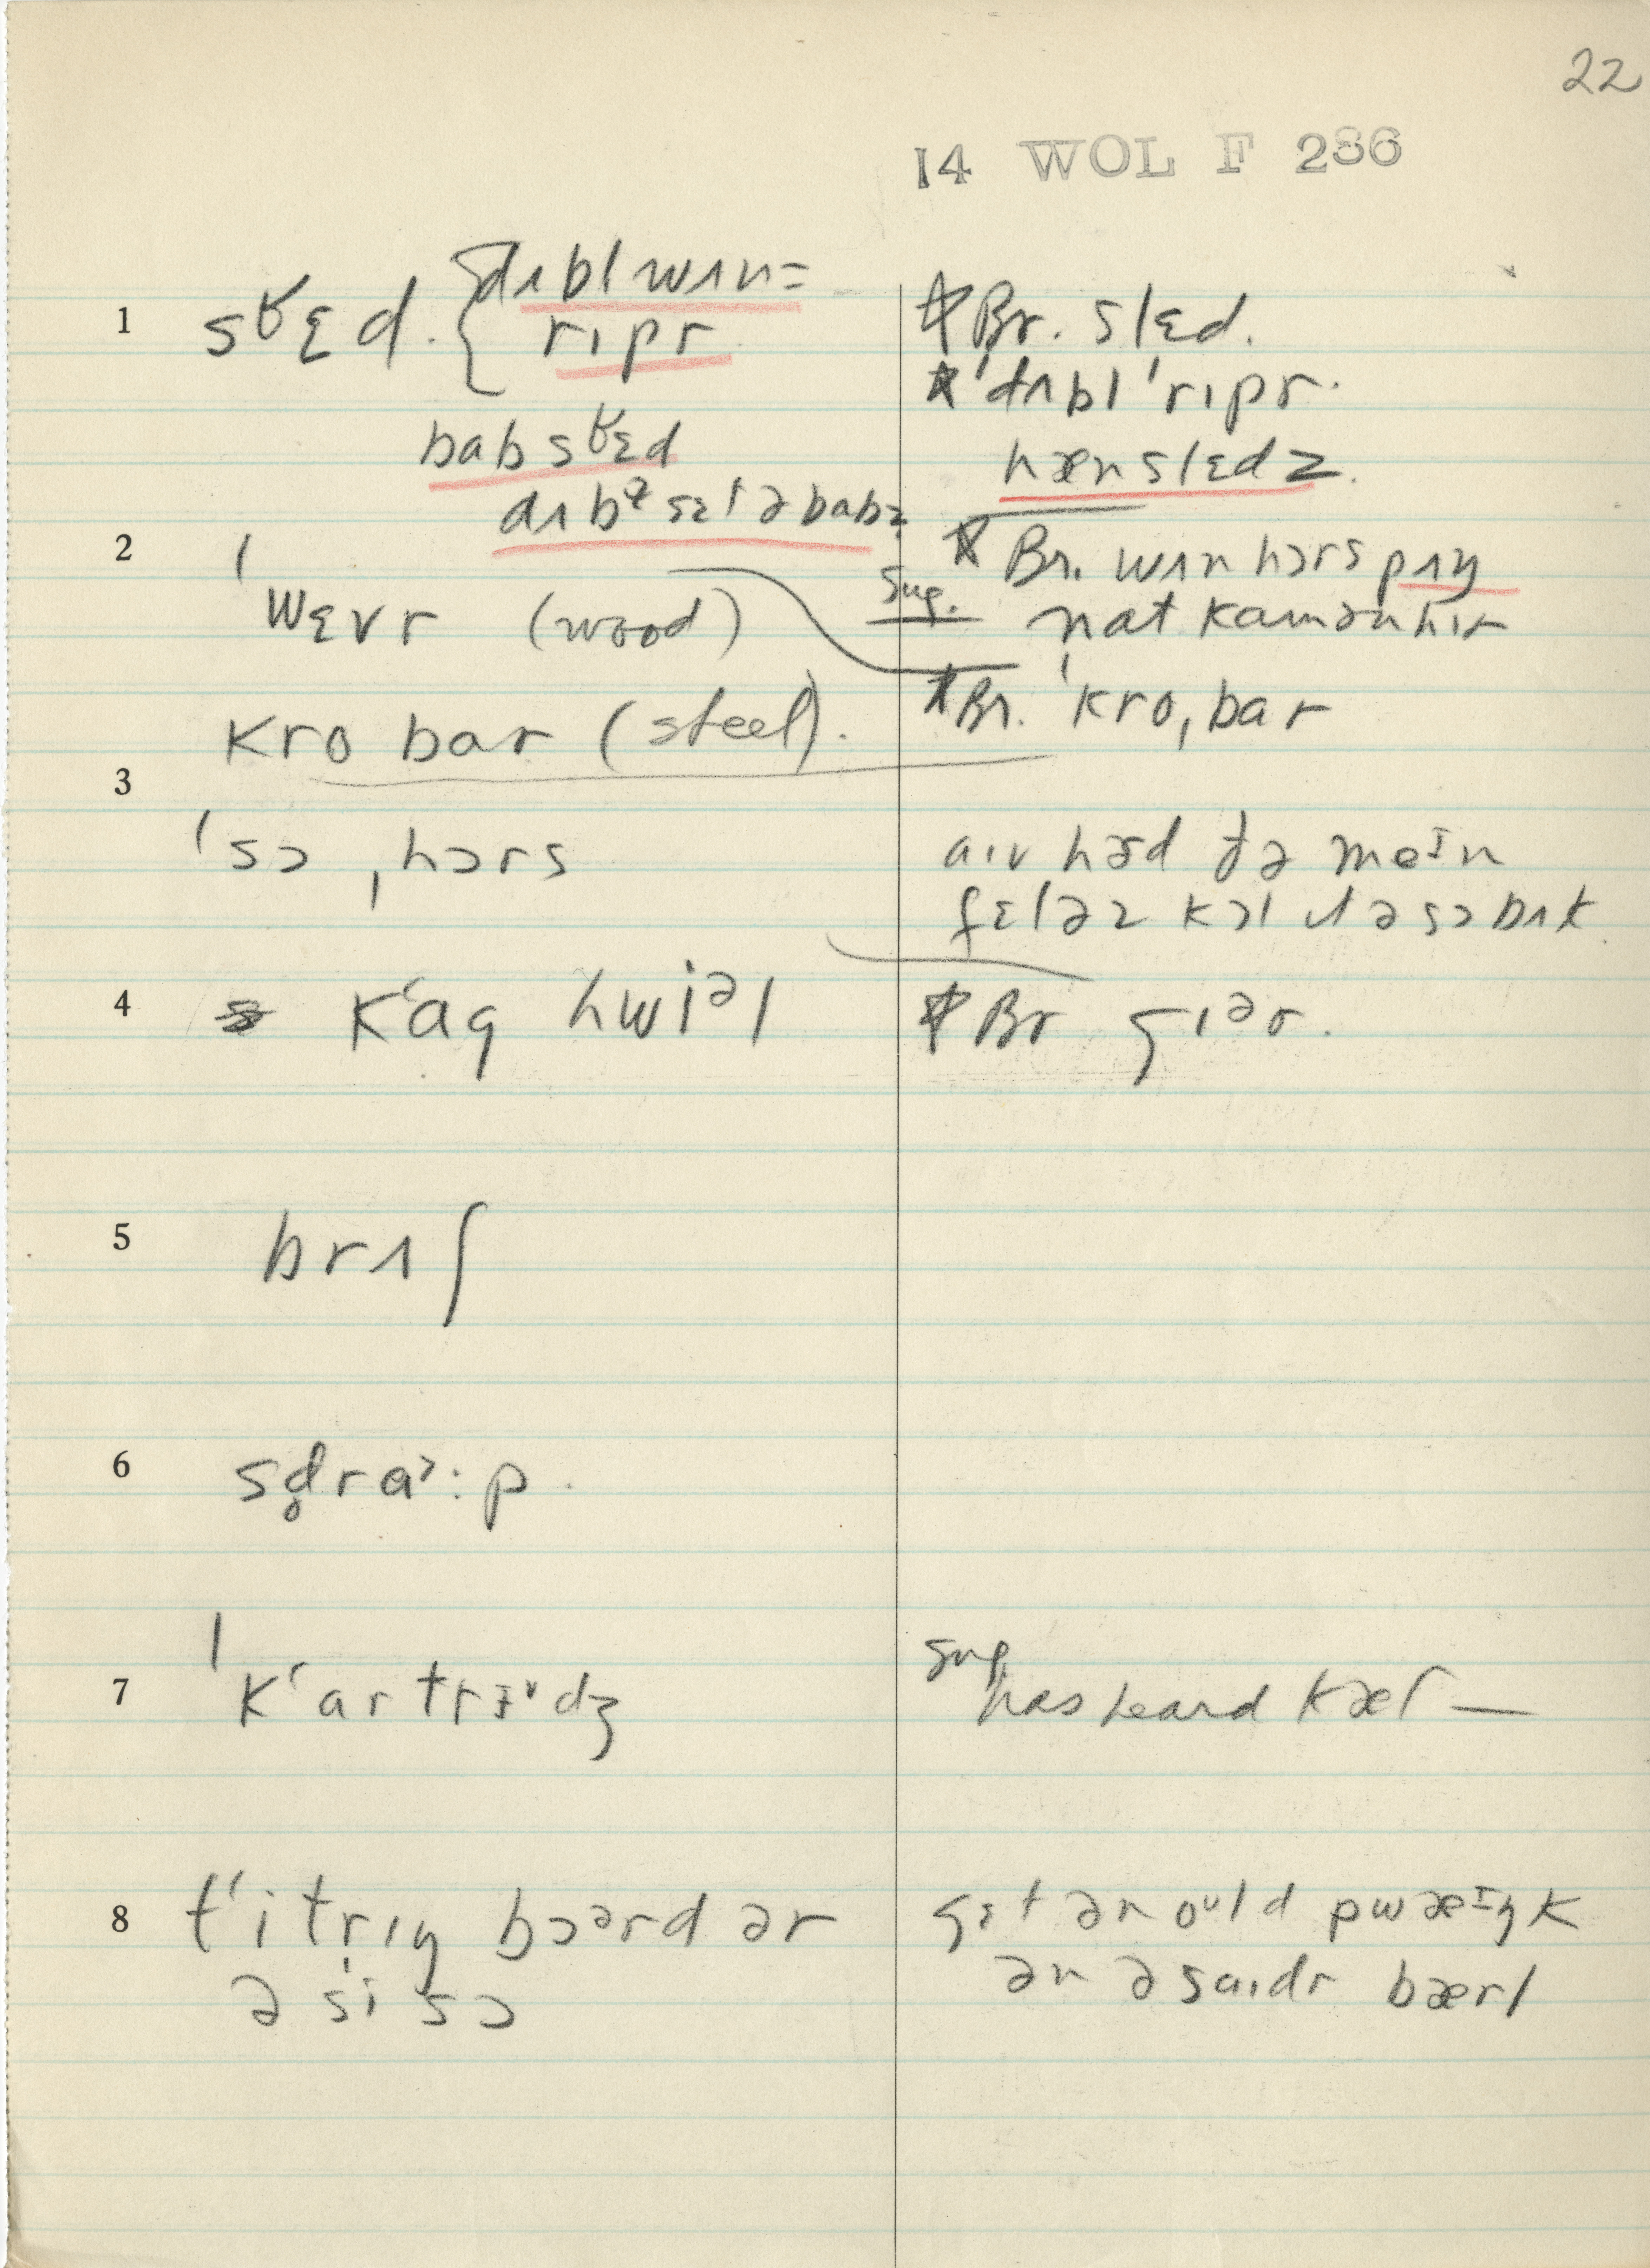 22
14 WOL F 286
1 sɫɛd. { dʌbl wʌn=
ripr
babsɫɛd
dʌbɫ sɛt ə babz
Br. slɛd.
ˈdʌbl ˈrɪpr.
hænslɛdz.
2 ˈwɛvr (wood)
kro bar (steel).
Br. wʌn hɔrs pʌŋ
sug. nat kamən hir
Br. ˈkro,bar
3 ˈsɔ ,hɔrs
aɪv hərd ðə meɪn
fɛləz kɔl ðə sɔ bʌk
4 kʻag hwiəl
Br gɪər.
5 brʌʃ
6 sd̥raɔ:p.
7 ˈkʻartrɪdʒ
sug has heard kæt —
8 tʻitrɪŋ bɔərd ər
ə si sɔ
gɛt ən oʊld pwæɪŋk
ən ə saɪdr bærl